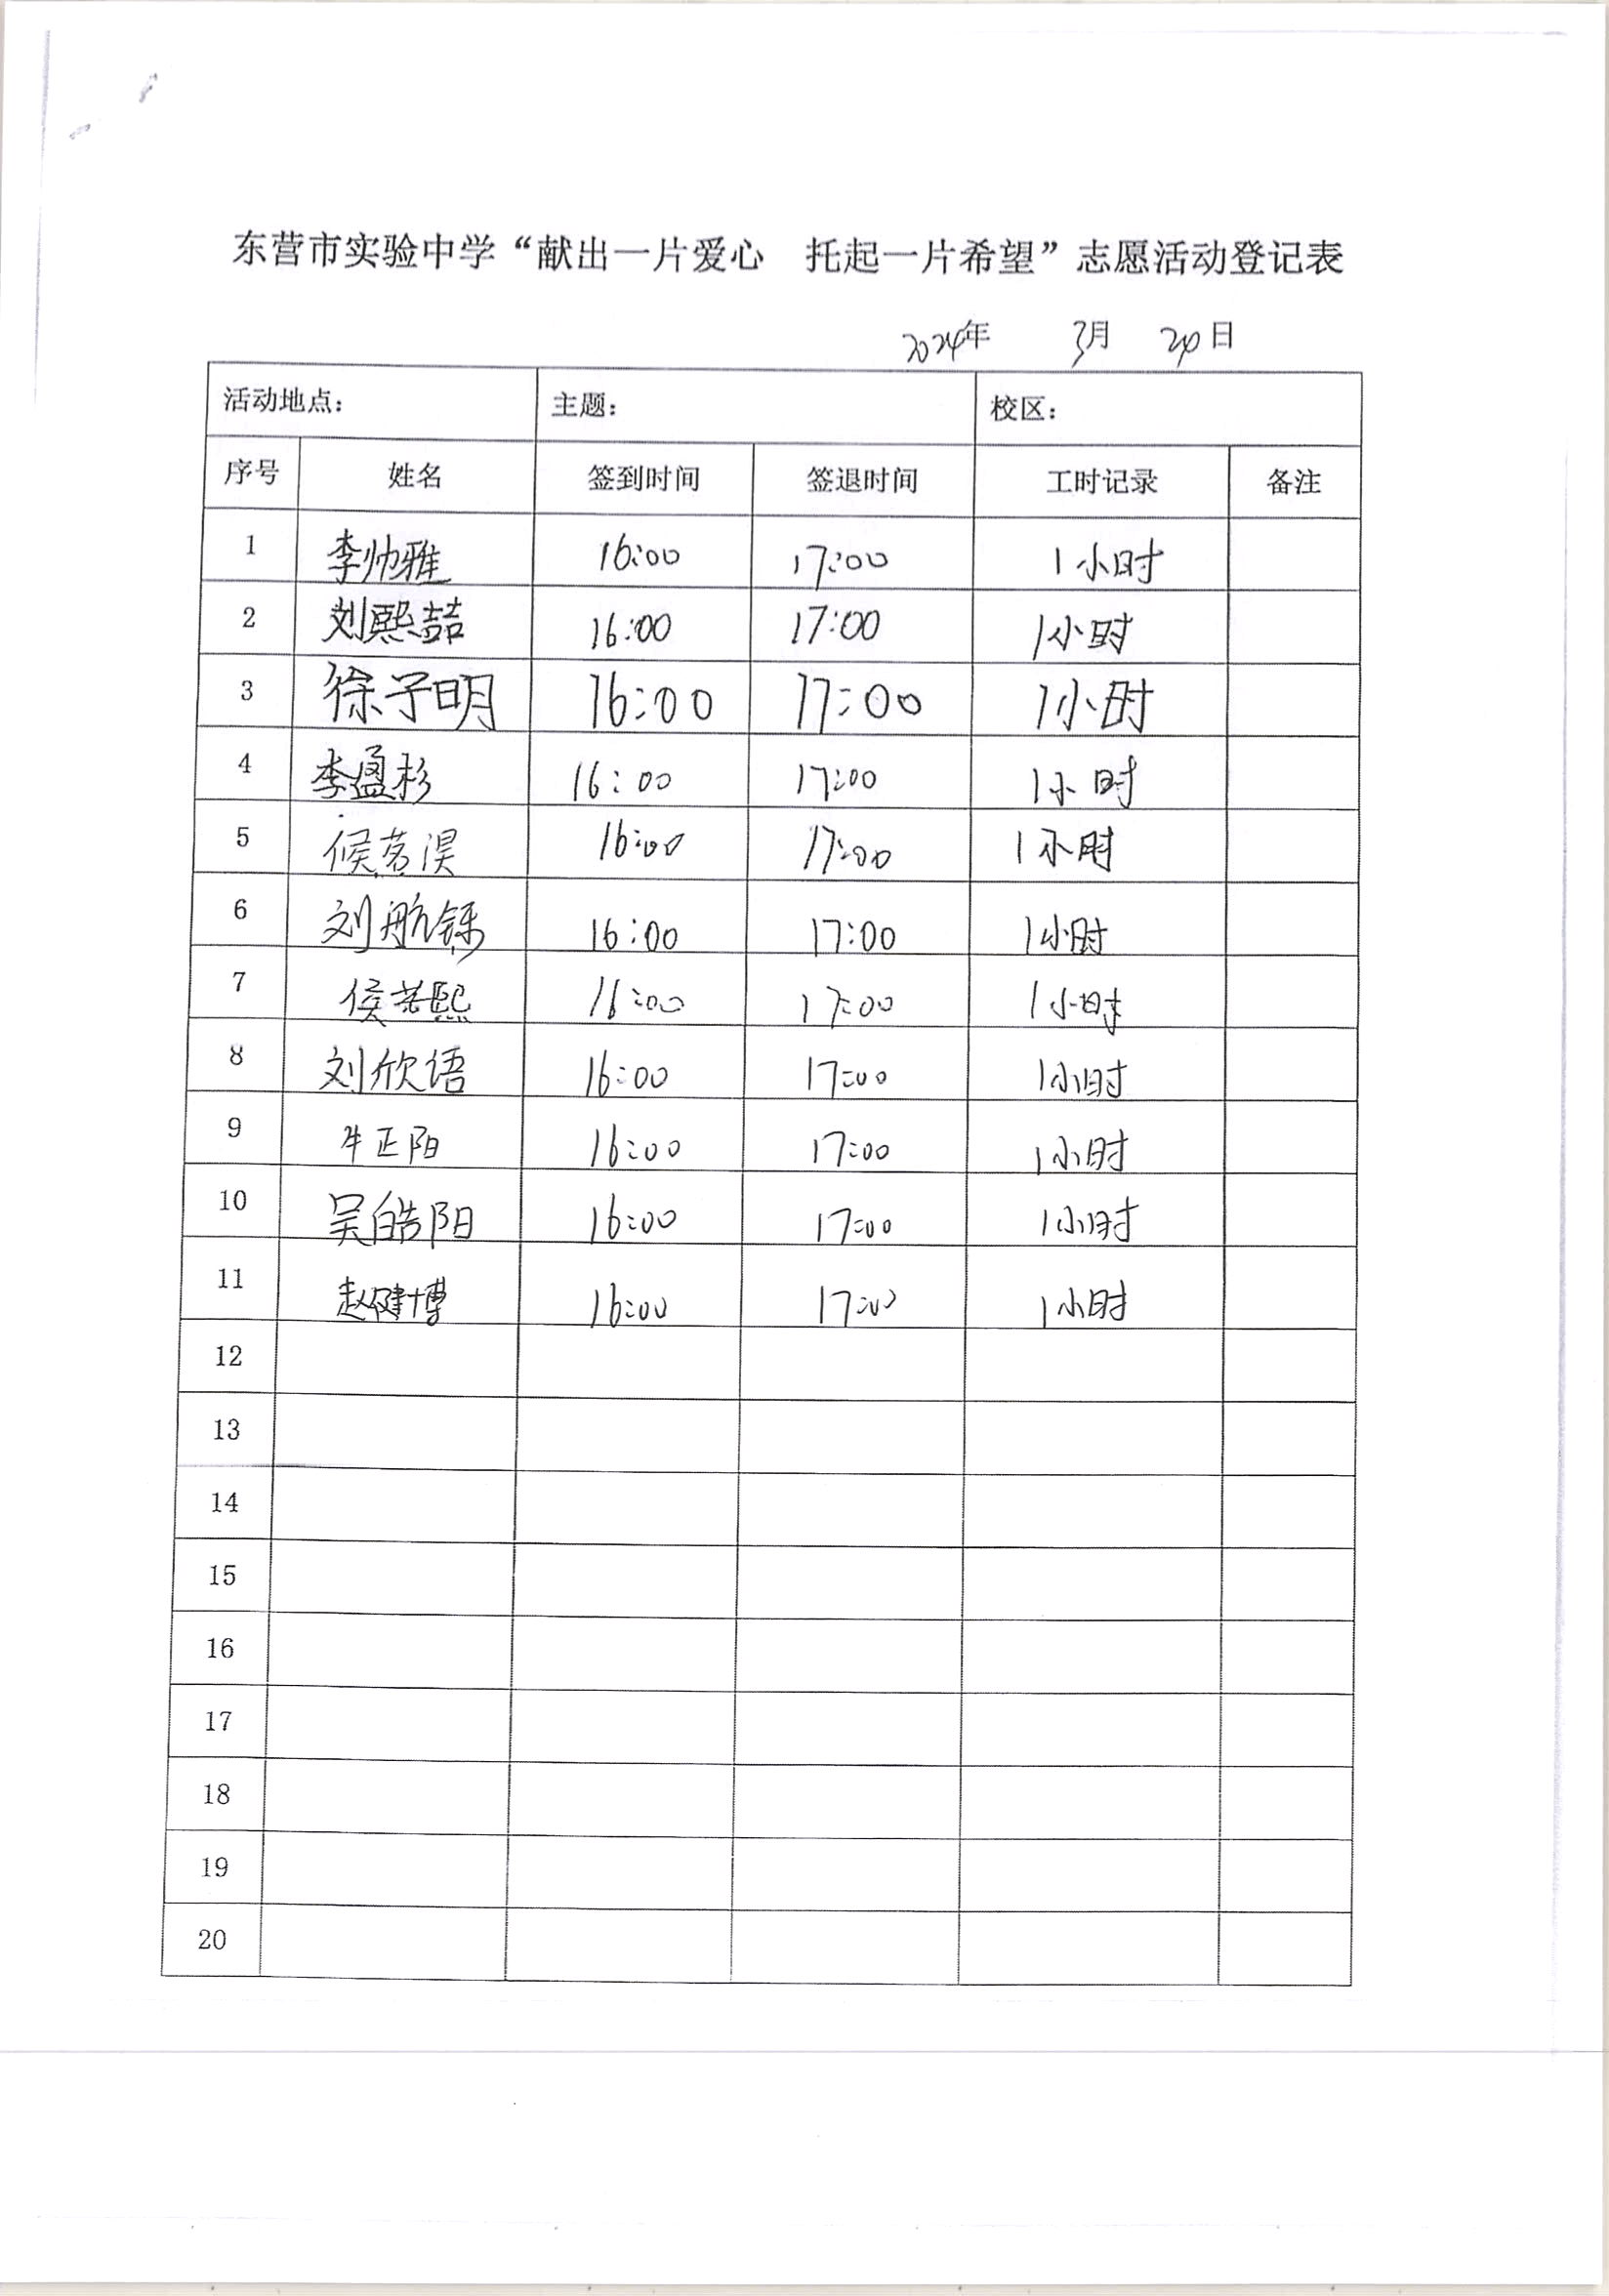 东营市实验中学“献出一片爱心 托起一片希望”志愿活动登记表
2024年 3月 20日
活动地点： 主题： 校区：
序号 姓名 签到时间 签退时间 工时记录 备注
1 李帅雅 16:00 17:00 1小时
2 刘熙喆 16:00 17:00 1小时
3 徐子明 16:00 17:00 1小时
4 李盈杉 16:00 17:00 1小时
5 侯茗淏 16:00 17:00 1小时
6 刘航铄 16:00 17:00 1小时
7 侯若熙 16:00 17:00 1小时
8 刘欣语 16:00 17:00 1小时
9 牛正阳 16:00 17:00 1小时
10 吴皓阳 16:00 17:00 1小时
11 赵健博 16:00 17:00 1小时
12
13
14
15
16
17
18
19
20